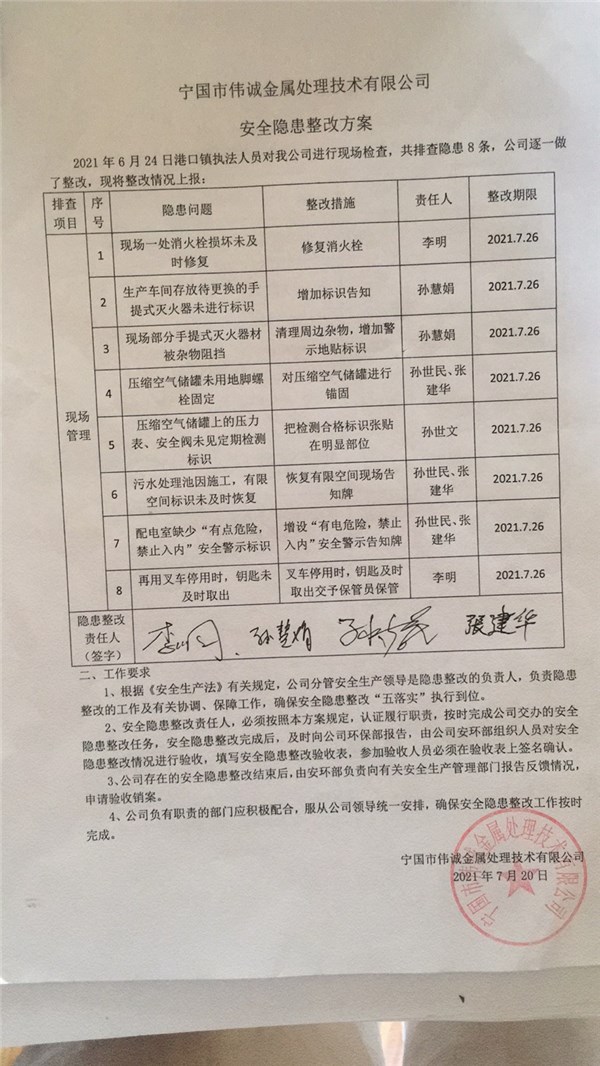 宁国市伟诚金属处理技术有限公司
安全隐患整改方案
2021年6月24日港口镇执法人员对我公司进行现场检查，共排查隐患8条，公司逐一做
了整改，现将整改情况上报：
排查项目 序号 隐患问题 整改措施 责任人 整改期限
现场管理
1 现场一处消火栓损坏未及时修复 修复消火栓 李明 2021.7.26
2 生产车间存放待更换的手提式灭火器未进行标识 增加标识告知 孙慧娟 2021.7.26
3 现场部分手提式灭火器材被杂物阻挡 清理周边杂物，增加警示地贴标识 孙慧娟 2021.7.26
4 压缩空气储罐未用地脚螺栓固定 对压缩空气储罐进行锚固 孙世民、张建华 2021.7.26
5 压缩空气储罐上的压力表、安全阀未见定期检测标识 把检测合格标识张贴在明显部位 孙世文 2021.7.26
6 污水处理池因施工，有限空间标识未及时恢复 恢复有限空间现场告知牌 孙世民、张建华 2021.7.26
7 配电室缺少“有点危险，禁止入内”安全警示标识 增设“有电危险，禁止入内”安全警示告知牌 孙世民、张建华 2021.7.26
8 再用叉车停用时，钥匙未及时取出 叉车停用时，钥匙及时取出交予保管员保管 李明 2021.7.26
隐患整改责任人（签字） 孙慧娟 张建华
二、工作要求
1、根据《安全生产法》有关规定，公司分管安全生产领导是隐患整改的负责人，负责隐患
整改的工作及有关协调、保障工作，确保安全隐患整改“五落实”执行到位。
2、安全隐患整改责任人，必须按照本方案规定，认证履行职责，按时完成公司交办的安全
隐患整改任务，安全隐患整改完成后，及时向公司环保部报告，由公司安环部组织人员对安全
隐患整改情况进行验收，填写安全隐患整改验收表，参加验收人员必须在验收表上签名确认。
3、公司存在的安全隐患整改结束后，由安环部负责向有关安全生产管理部门报告反馈情况，
申请验收销案。
4、公司负有职责的部门应积极配合，服从公司领导统一安排，确保安全隐患整改工作按时
完成。
宁国市伟诚金属处理技术有限公司
2021年7月20日
宁国市伟诚金属处理技术有限公司